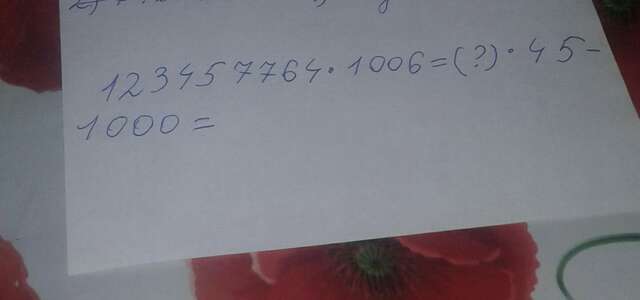 123457764·1006=(?)·45-
1000=